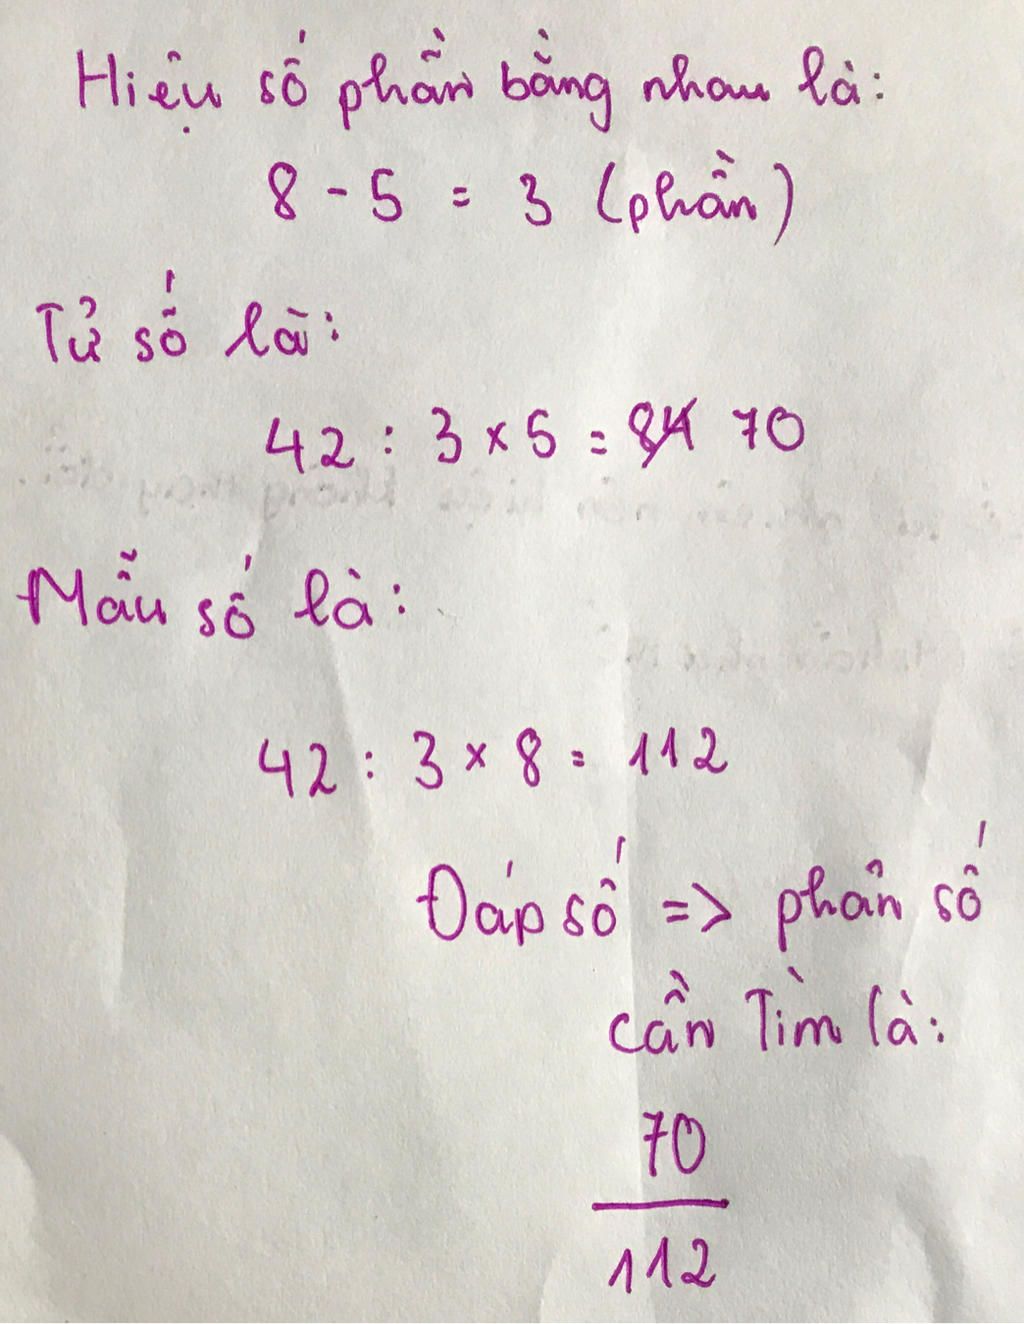 Hiệu số phần bằng nhau là:
8 - 5 = 3 (phần)
Tử số là:
42 : 3 x 5 = 84 70
Mẫu số là:
42 : 3 x 8 = 112
Đáp số => phân số
cần Tìm là:
70
112